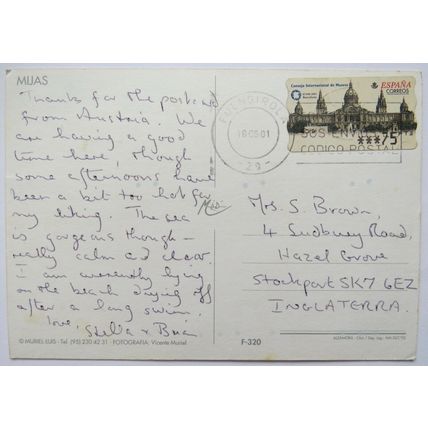 MIJAS
Thanks for the postcard
from Austria. We
are having a good
time here, though
some afternoons have
been a bit too hot for
my liking. The sea
is gorgeous though –
really calm and clear.
I am currently lying
on the beach drying off
after a long swim.
love,
Stella & Brian
© MURIEL EIJS - Tel (95) 230 42 31 · FOTOGRAFIA: Vicente Muriel
F-320
FUENGIROLA
18 09 01
- 29 -
CODIGO POSTAL
Consejo Internacional de Museos
ESPAÑA
CORREOS
***75
Mrs. S. Brown,
4 Sudbury Road,
Hazel Grove
Stockport SK7 6EZ
INGLATERRA.